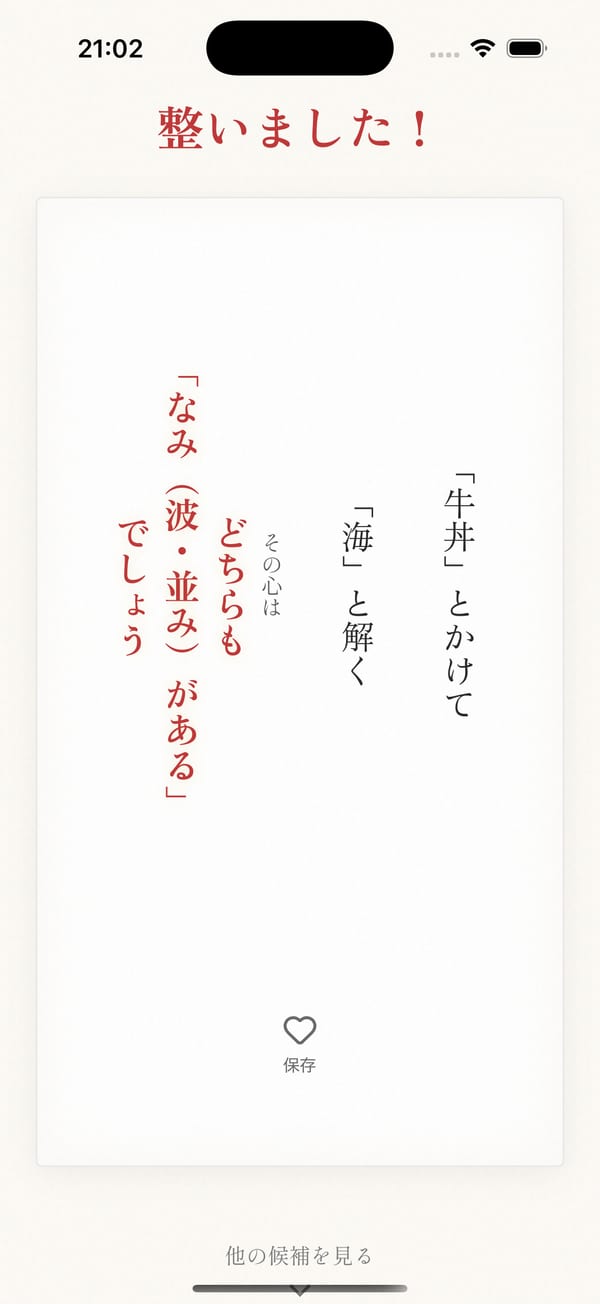 21:02
整いました！
「牛丼」とかけて
「海」と解く
その心は
どちらも
「なみ（波・並み）がある」
でしょう
保存
他の候補を見る